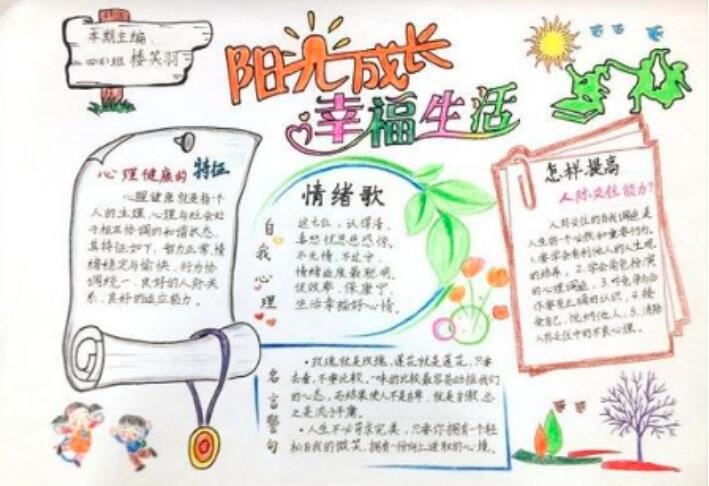 本期主编:
四(4)班 楼笑羽
阳光成长
幸福生活
心理健康的特征
心理健康就是指个
人的生理、心理与社会处
于相互协调的和谐状态,
其特征如下:智力正常,情
绪稳定与愉快,行为协
调统一,良好的人际关
系,良好的适应能力。
自我心理
情绪歌
认得清,
喜怒忧思悲恐惊。
不先情,不过分,
情绪适度最聪明。
促效率,保康宁,
生活幸福好心情。
怎样提高
人际交往能力?
人际交往的自我调适是
人生的一个必然和重要行为。
的培养。2.学会角色扮演
的心理调适。
作客观正确的认识。4.接
受自己,悦纳他人。5.消除
人际交往中的不良心理。
名言警句
·玫瑰就是玫瑰,莲花就是莲花,只要
去看,不要比较。一味的比较最容易动摇我们
的心态,而结果使人不是自卑,就是自傲,总
之是流于平庸。
·人生不必苛求完美,只要你拥有一个轻
松自我的微笑,拥有一份向上进取的心境。